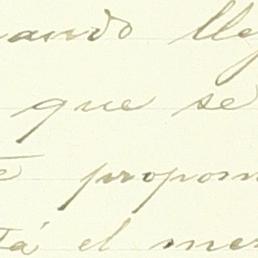 uando lle
que se
e propon
tá el mes